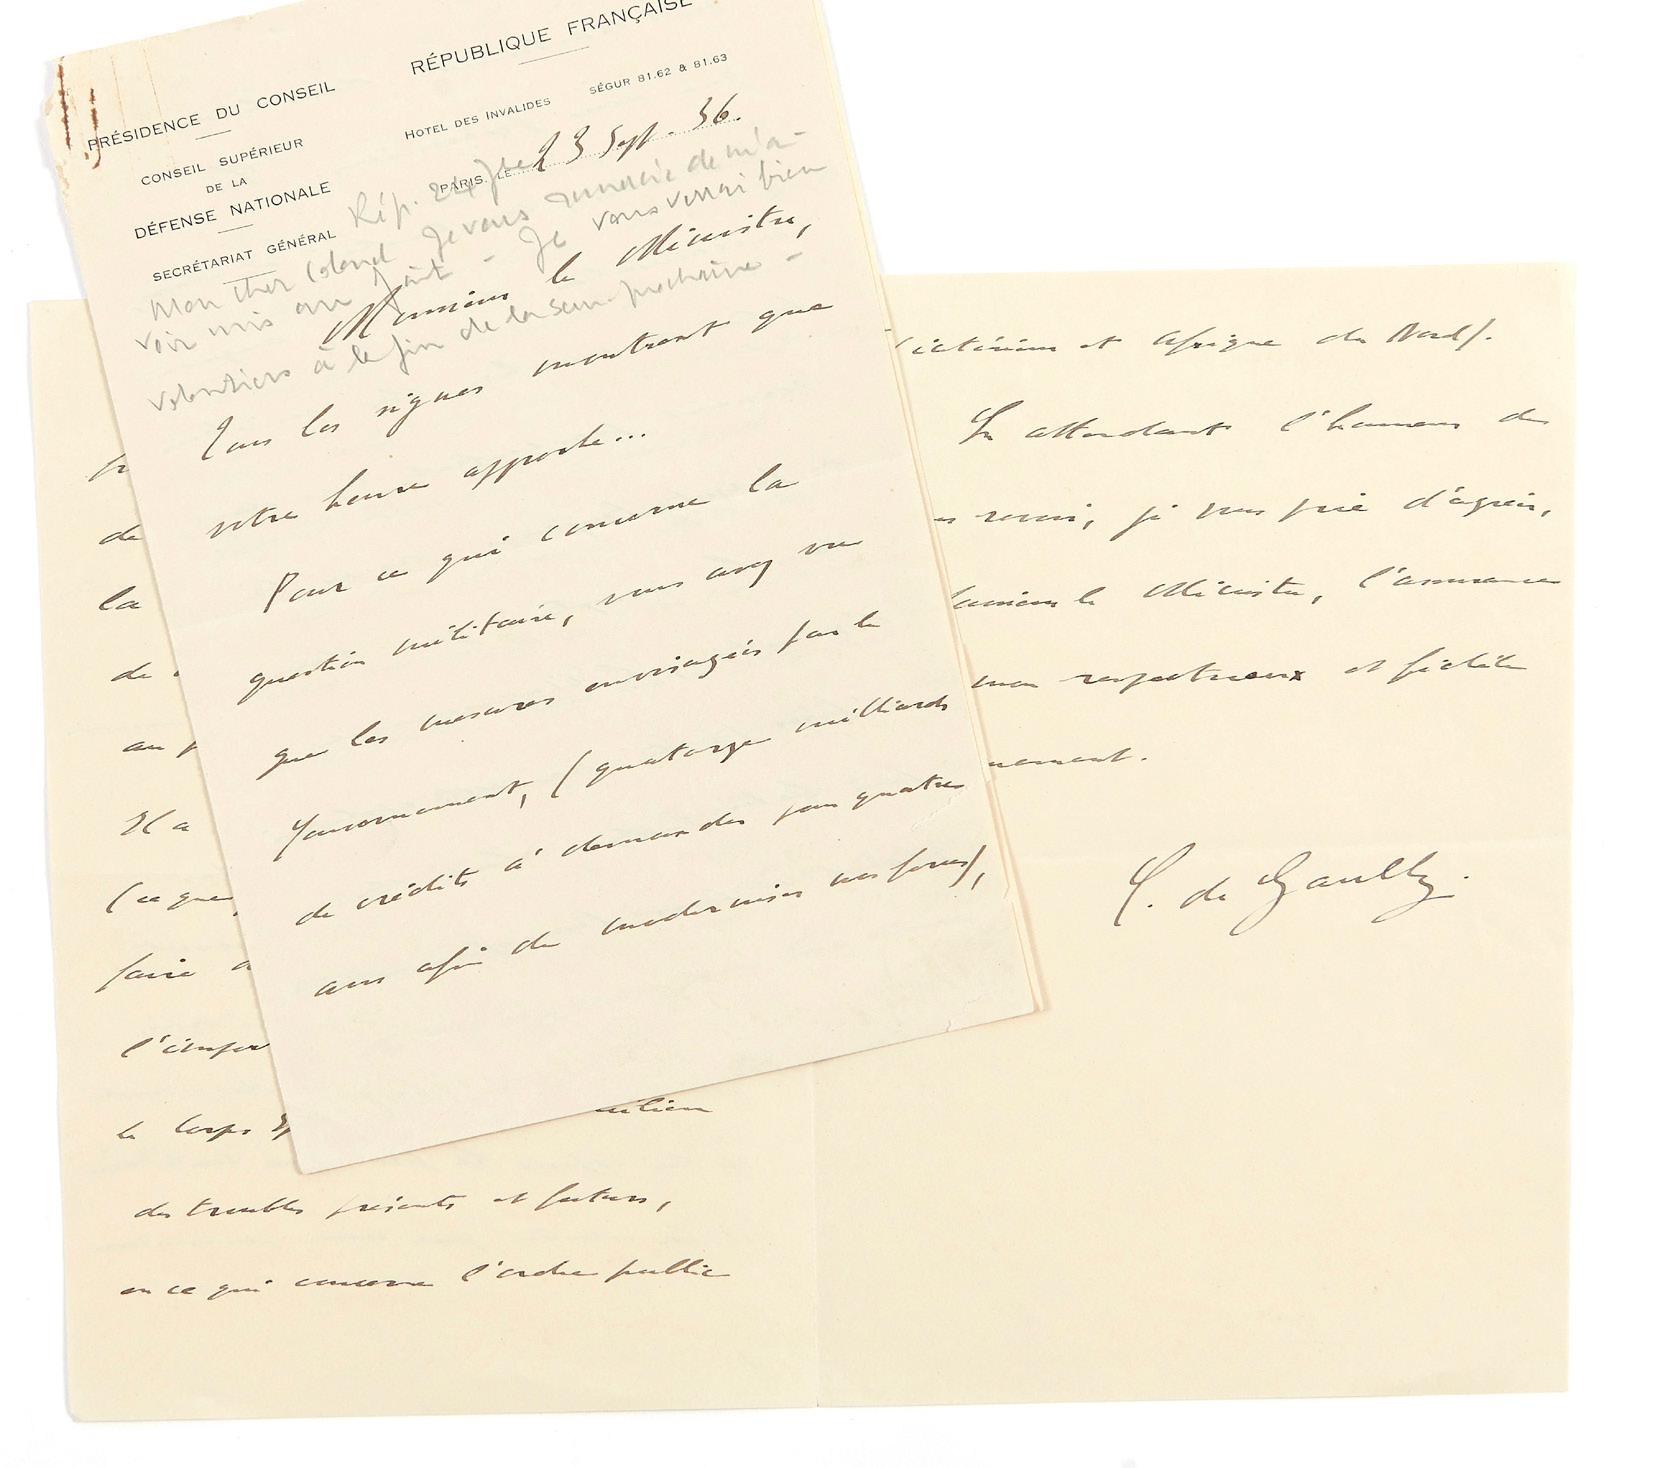 RÉPUBLIQUE FRANÇAISE
PRÉSIDENCE DU CONSEIL
CONSEIL SUPÉRIEUR
DE LA
DÉFENSE NATIONALE
SECRÉTARIAT GÉNÉRAL
HOTEL DES INVALIDES SÉGUR 81.62 & 81.63
PARIS, LE 23 Sept. 36.
Rép. 24 7bre
Mon cher Colonel Je vous remercie de m'a-
voir mis au fait - Je vous verrai bien
volontiers à la fin de la sem. prochaine -
Monsieur le Ministre,
Tous les signes montrent que
votre heure approche...
Pour ce qui concerne la
question militaire, vous avez vu
que les mesures envisagées par le
gouvernement, (quatorze milliards
de crédits à demander pour quatre
ans afin de moderniser nos forces),
de
la
de
au
Il a
(ce que
faire
l'
le corps
des troubles présents et futurs,
en ce qui concerne l'ordre public
(intérieur et Afrique du Nord).
En attendant l'honneur de
revoir, je vous prie d'agréer,
le Ministre, l'assurance
mon respectueux et fidèle
C. de Gaulle.